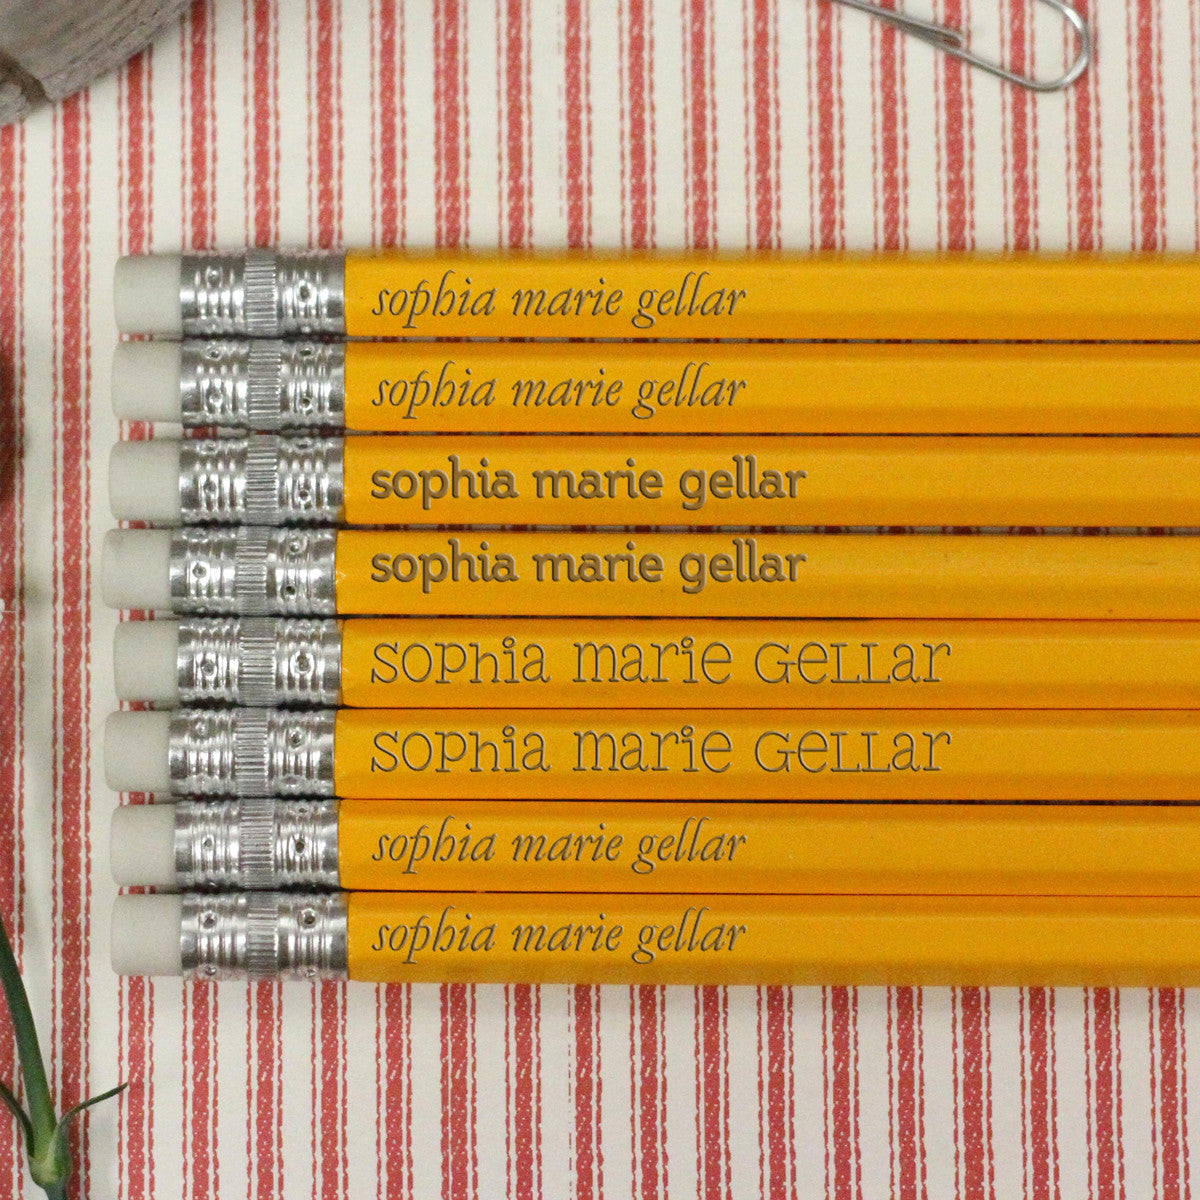 sophia marie gellar
sophia marie gellar
sophia marie gellar
sophia marie gellar
sophia marie gellar
sophia marie gellar
sophia marie gellar
sophia marie gellar